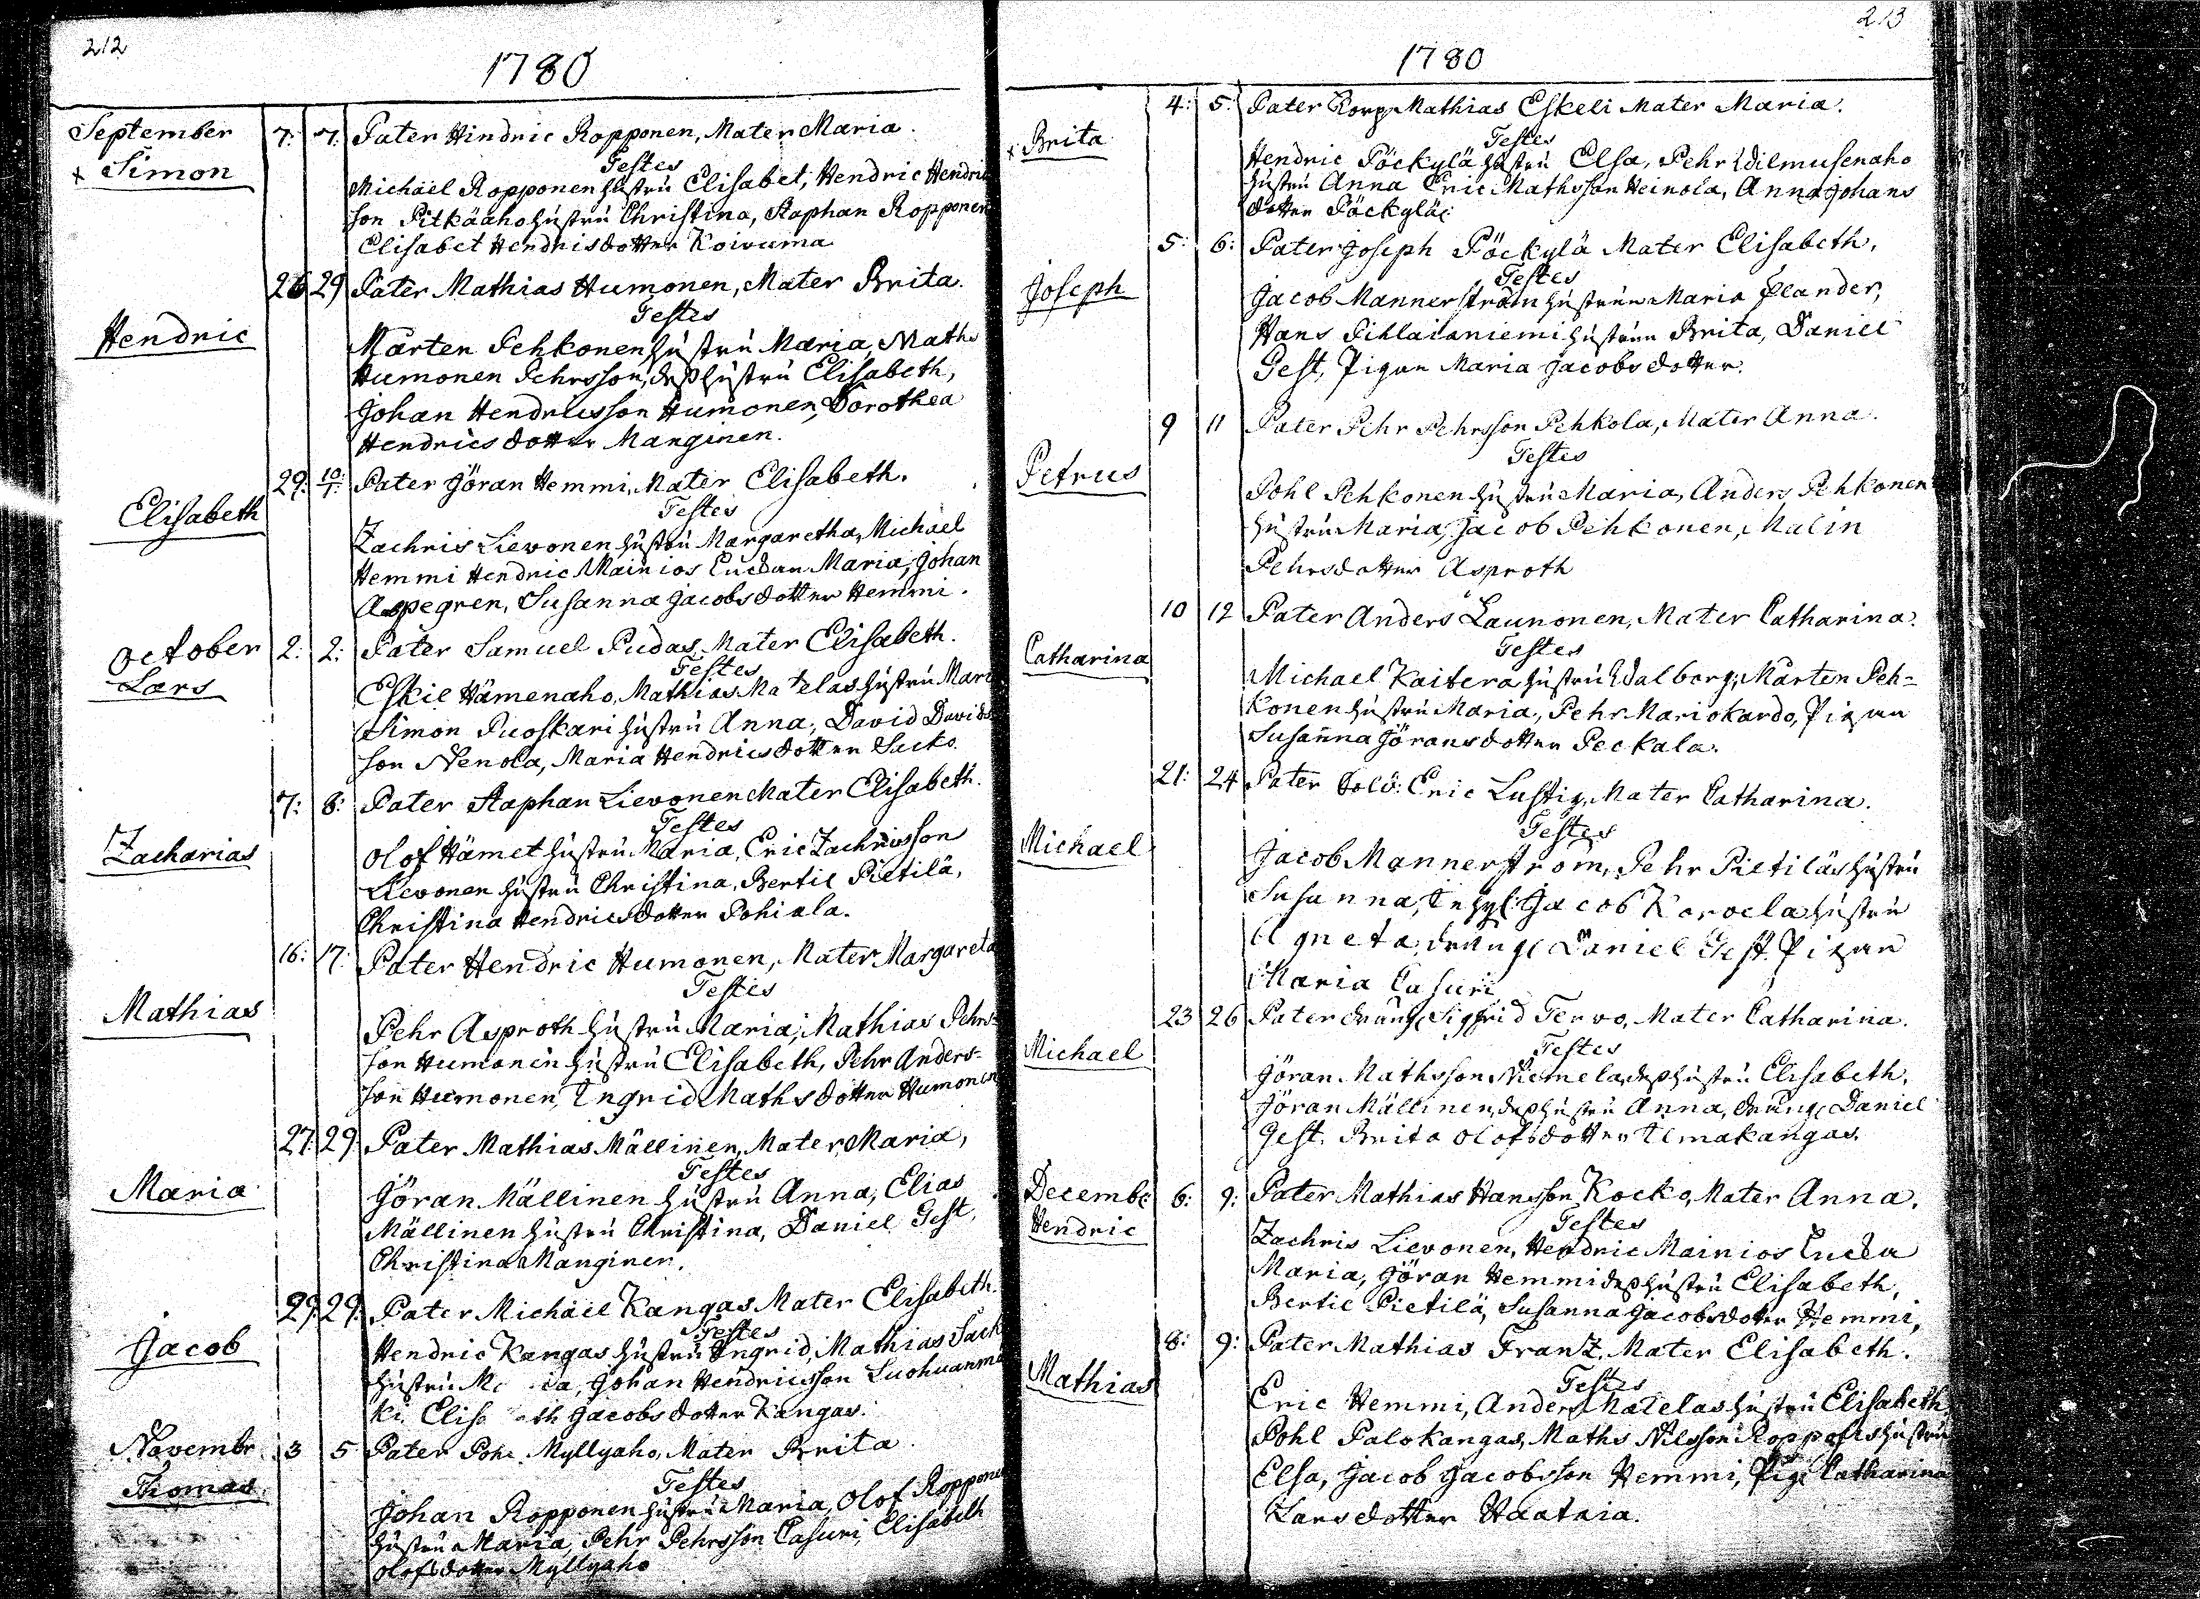 212
1780
September 7: 7: Pater Hindric Ropponen, Mater Maria.
x Simon
Testes
Michaël Ropponen hustru Elisabet, Hendric Hendric
son Pitkäaho hustru Christina, Staphan Ropponen
Elisabet Hendricsdotter Koivuma
26 29 Pater Mathias Humonen, Mater Brita.
Testes
Hendric
Mårten Pehkonen hustru Maria, Maths
Humonen Pehrsson, dess hustru Elisabeth,
Johan Hendricsson Humonen, Dorothea
Hendricsdotter Manginen.
29: 10/1: Pater Jöran Hemmi, Mater Elisabeth.
Elisabeth
Testes
Zachris Lievonen hustru Margaretha, Michaël
Hemmi Hendric Mainios Enckan Maria, Johan
Aspegren, Susanna Jacobsdotter Hemmi.
October 2: 2: Pater Samuel Pudas, Mater Elisabeth.
Lars
Testes
Eskil Hämenaho, Mathias Matelas hustru Mari
Simon Puoskari hustru Anna, David Davids
son Nenola, Maria Hendricsdotter Sacko.
7: 8: Pater Staphan Lievonen Mater Elisabeth.
Testes
Zacharias
Olof Hämet hustru Maria, Eric Zachrisson
Lievonen hustru Christina, Bertil Pietilä,
Christina Hendricsdotter Pohiala.
16: 17: Pater Hendric Humonen, Mater Margareta
Testes
Mathias
Pehr Asproth hustru Maria, Mathias Pehrs-
son Humonen hustru Elisabeth, Pehr Anders-
son Humonen, Ingrid Mathsdotter Humonen
27: 29: Pater Mathias Mällinen, Mater Maria,
Testes
Maria
Jöran Mällinen hustru Anna, Elias
Mällinen hustru Christina, Daniel Gest,
Christina Manginen.
29: 29: Pater Michäel Kangas Mater Elisabeth.
Testes
Jacob
Hendric Kangas hustru Ingrid, Mathias Sack
hustru M ia, Johan Hendricsson Luohuanma
ki Elisa eth Jacobsdotter Kangas.
Novembr 3 5 Pater Pohl Myllyaho, Mater Brita
Thomas
Testes
Johan Ropponen hustru Maria, Olof Roppone
hustru Maria, Pehr Pehrsson Casuri, Elisabeth
Olofsdotter Myllyaho
213
1780
4: 5: Pater Korp Mathias Eskeli Mater Maria.
x Brita
Testes
Hendric Pöckylä hustru Elsa, Pehr Wilmusenaho
hustru Anna Eric Mathsson Heinola, Anna Johans
dotter Pöckylä:
5: 6: Pater Joseph Pöckylä Mater Elisabeth,
Testes
Joseph
Jacob Mannerström hustrun Maria Elander,
Hans Pihlaianiemi hustrun Brita, Daniel
Gest, Pigan Maria Jacobsdotter.
9 11 Pater Pehr Pehrsson Pehkola, Mater Anna.
Testes
Petrus
Pohl Pehkonen hustru Maria, Anders Pehkonen
hustru Maria, Jacob Pehkonen, Malin
Pehrsdotter Asproth
10 12 Pater Anders Launonen, Mater Catharina.
Testes
Catharina
Michael Kaitera hustru Walborg, Mårten Peh-
konen hustru Maria, Pehr Mariokardo, Pigan
Susanna Jöransdotter Peckala.
21: 24 Pater Sold: Eric Lustig, Mater Catharina.
Testes
Michael
Jacob Mannerström, Pehr Pietiläs hustru
Susanna, Jacob Karvela hustru
Agneta, dräng Daniel Gest. Pigan
Maria Casuri
23 26 Pater dräng Sigfrid Tervo, Mater Catharina.
Testes
Michael
Jöran Mathsson Niemela, dess hustru Elisabeth,
Jöran Mällinen, dess hustru Anna, dräng Daniel
Gest. Brita Olofsdotter Ulmakangas.
Decembr 6: 9: Pater Mathias Hansson Kocko, Mater Anna.
Testes
Hendric
Zachris Lievonen, Hendric Mainios Encka
Maria, Jöran Hemmi dess hustru Elisabeth,
Bertil Pietilä, Susanna Jacobsdotter Hemmi,
8: 9: Pater Mathias Frantz, Mater Elisabeth.
Testes
Mathias
Eric Hemmi, Anders Matelas hustru Elisabeth
Pohl Palokangas, Maths Nilsson hustru
Elsa, Jacob Jacobsson Hemmi, Pig: Catharina
Larsdotter Haataia.